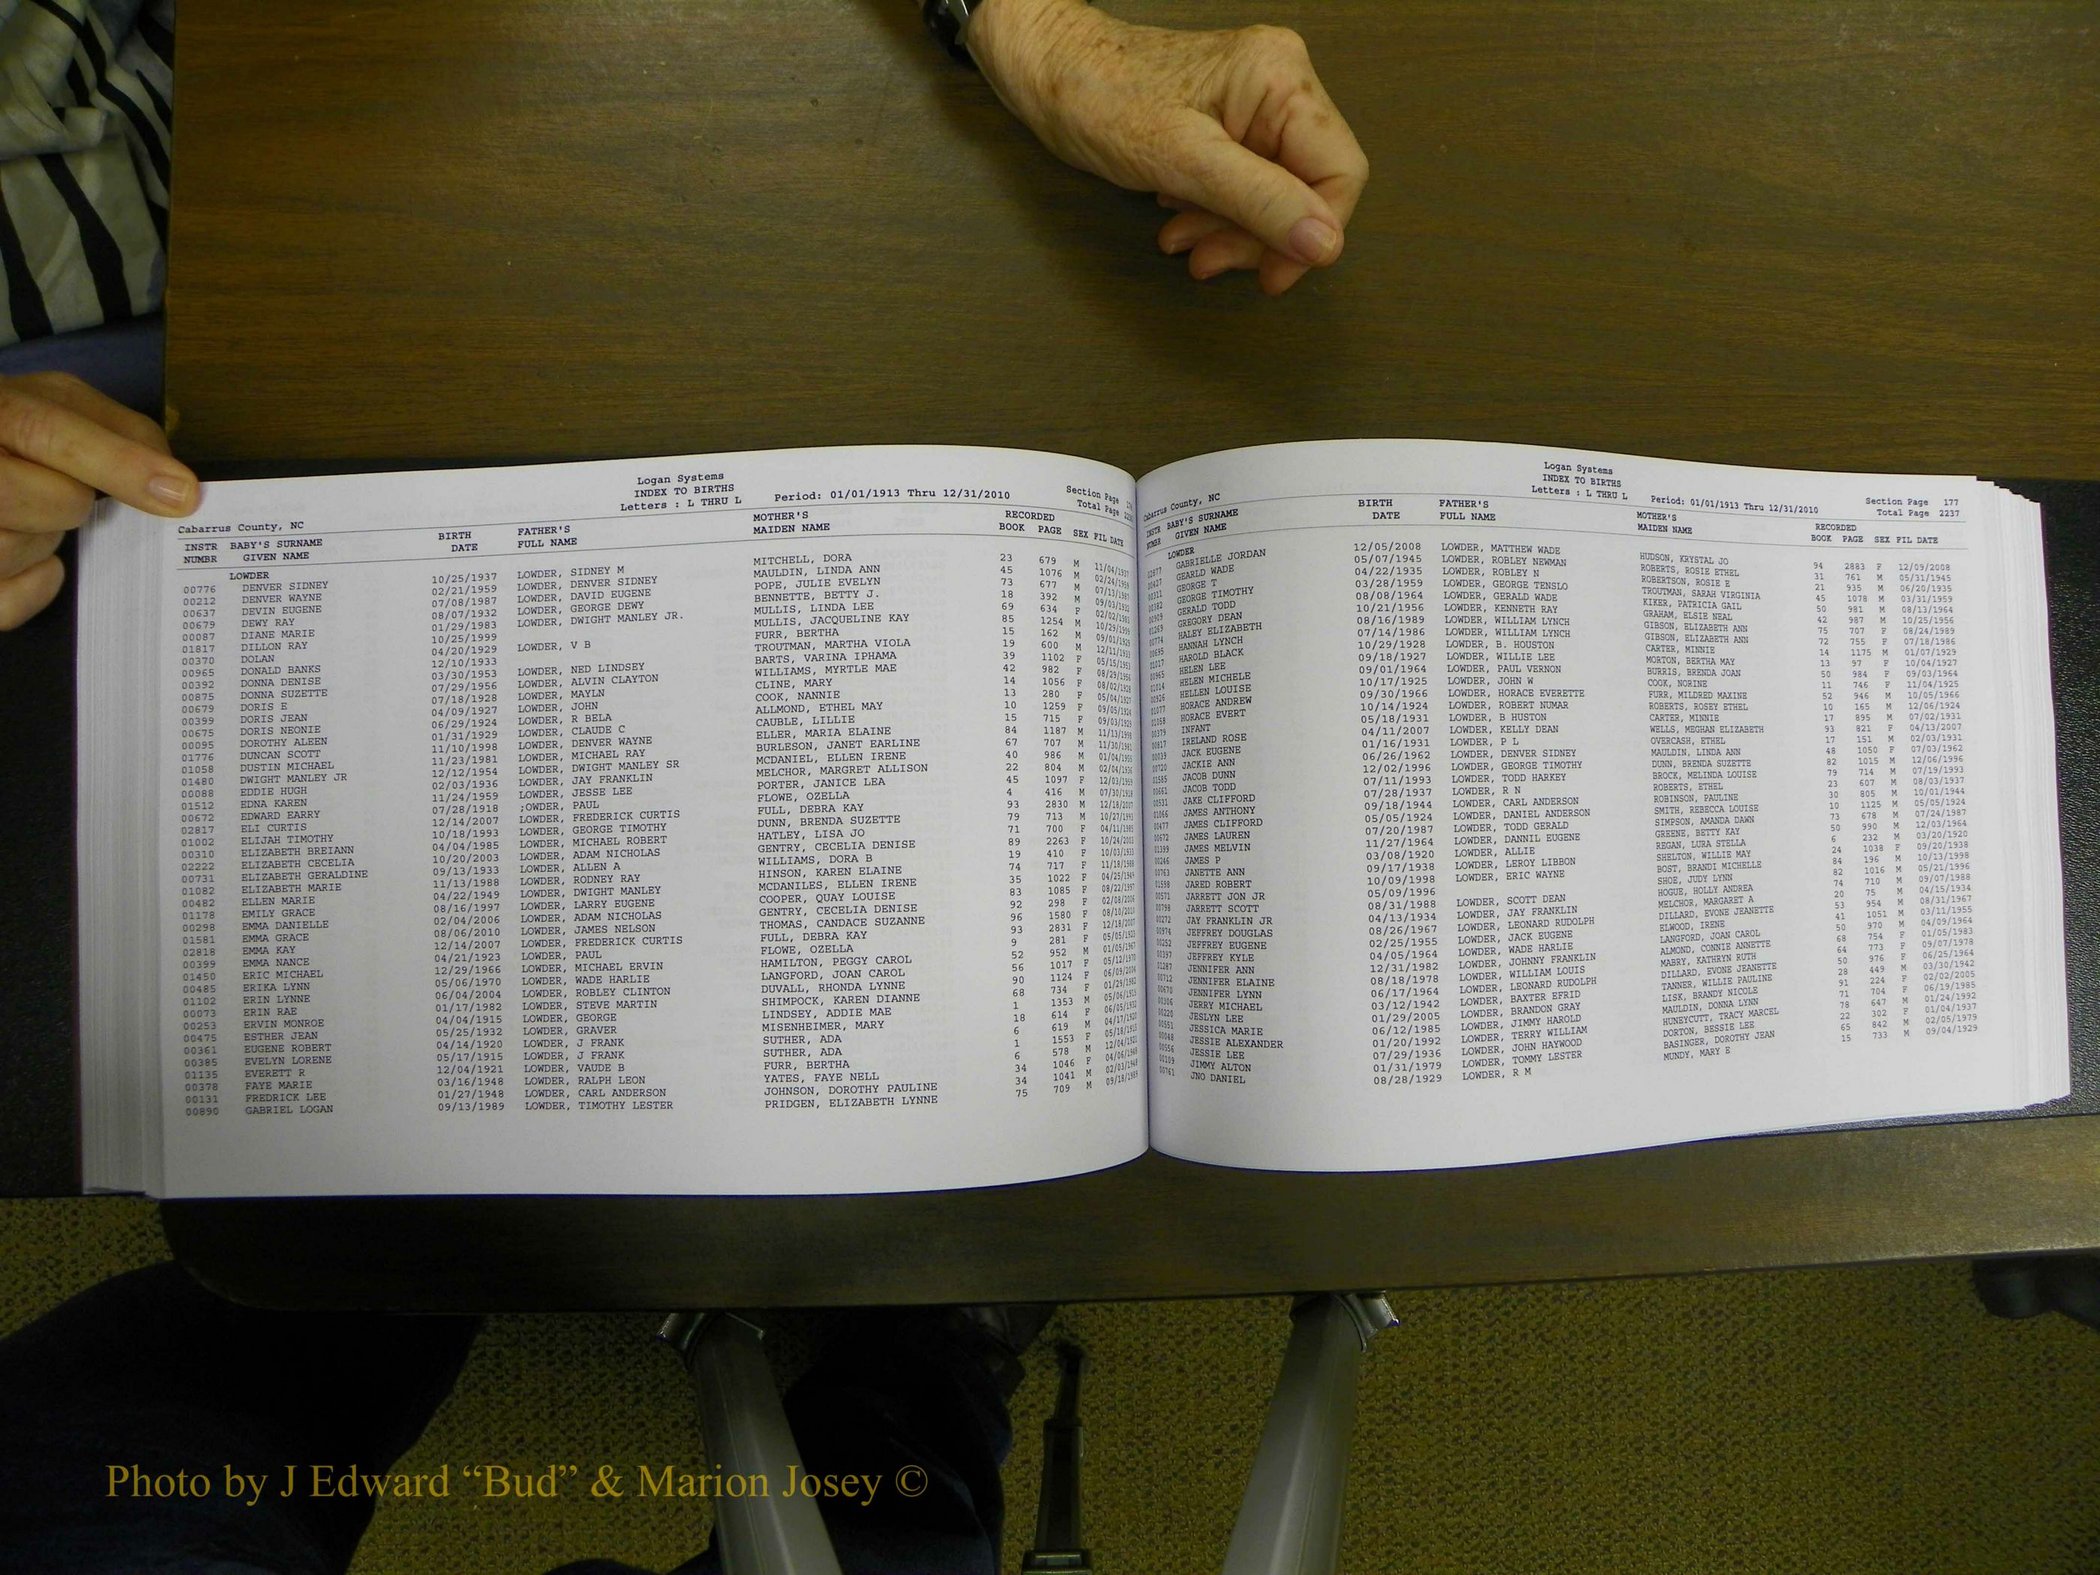 Logan Systems
INDEX TO BIRTHS
Letters : L THRU L
Period: 01/01/1913 Thru 12/31/2010
Section Page
Total Page
Cabarrus County, NC
INSTR BABY'S SURNAME BIRTH FATHER'S MOTHER'S RECORDED
NUMBR GIVEN NAME DATE FULL NAME MAIDEN NAME BOOK PAGE SEX FIL DATE
LOWDER
00776 DENVER SIDNEY 10/25/1937 LOWDER, SIDNEY M MITCHELL, DORA 23 679 M 11/04/1937
00212 DENVER WAYNE 02/21/1959 LOWDER, DENVER SIDNEY MAULDIN, LINDA ANN 45 1076 M 02/24/1959
00637 DEVIN EUGENE 07/08/1987 LOWDER, DAVID EUGENE POPE, JULIE EVELYN 73 677 M 07/13/1987
00679 DEWY RAY 08/07/1932 LOWDER, GEORGE DEWY BENNETTE, BETTY J. 18 392 M 09/03/1932
00087 DIANE MARIE 01/29/1983 LOWDER, DWIGHT MANLEY JR. MULLIS, LINDA LEE 69 634 F 02/02/1983
01817 DILLON RAY 10/25/1999 MULLIS, JACQUELINE KAY 85 1254 M 10/29/1999
00370 DOLAN 04/20/1929 LOWDER, V B FURR, BERTHA 15 162 M 09/01/1929
00965 DONALD BANKS 12/10/1933 TROUTMAN, MARTHA VIOLA 19 600 M 12/11/1933
00392 DONNA DENISE 03/30/1953 LOWDER, NED LINDSEY BARTS, VARINA IPHAMA 39 1102 F 05/15/1953
00875 DONNA SUZETTE 07/29/1956 LOWDER, ALVIN CLAYTON WILLIAMS, MYRTLE MAE 42 982 F 08/29/1956
00679 DORIS E 07/18/1928 LOWDER, MAYLN CLINE, MARY 14 1056 F 08/02/1928
00399 DORIS JEAN 04/09/1927 LOWDER, JOHN COOK, NANNIE 13 280 F 05/04/1927
00675 DORIS NEONIE 06/29/1924 LOWDER, R BELA ALLMOND, ETHEL MAY 10 1259 F 09/05/1924
00095 DOROTHY ALEEN 01/31/1929 LOWDER, CLAUDE C CAUBLE, LILLIE 15 715 F 09/03/1929
01776 DUNCAN SCOTT 11/10/1998 LOWDER, DENVER WAYNE ELLER, MARIA ELAINE 84 1187 M 11/13/1998
01058 DUSTIN MICHAEL 11/23/1981 LOWDER, MICHAEL RAY BURLESON, JANET EARLINE 67 707 M 11/30/1981
01480 DWIGHT MANLEY JR 12/12/1954 LOWDER, DWIGHT MANLEY SR MCDANIEL, ELLEN IRENE 40 986 M 01/04/1955
00088 EDDIE HUGH 02/03/1936 LOWDER, JAY FRANKLIN MELCHOR, MARGRET ALLISON 22 804 M 02/04/1936
01512 EDNA KAREN 11/24/1959 LOWDER, JESSE LEE PORTER, JANICE LEA 45 1097 F 12/03/1959
00672 EDWARD EARRY 07/28/1918 ;OWDER, PAUL FLOWE, OZELLA 4 416 M 07/30/1918
02817 ELI CURTIS 12/14/2007 LOWDER, FREDERICK CURTIS FULL, DEBRA KAY 93 2830 M 12/18/2007
01002 ELIJAH TIMOTHY 10/18/1993 LOWDER, GEORGE TIMOTHY DUNN, BRENDA SUZETTE 79 713 M 10/27/1993
00310 ELIZABETH BREIANN 04/04/1985 LOWDER, MICHAEL ROBERT HATLEY, LISA JO 71 700 F 04/11/1985
02222 ELIZABETH CECELIA 10/20/2003 LOWDER, ADAM NICHOLAS GENTRY, CECELIA DENISE 89 2263 F 10/24/2003
00731 ELIZABETH GERALDINE 09/13/1933 LOWDER, ALLEN A WILLIAMS, DORA B 19 410 F 10/03/1933
01082 ELIZABETH MARIE 11/13/1988 LOWDER, RODNEY RAY HINSON, KAREN ELAINE 74 717 F 11/18/1988
00482 ELLEN MARIE 04/22/1949 LOWDER, DWIGHT MANLEY MCDANILES, ELLEN IRENE 35 1022 F 04/25/1949
01178 EMILY GRACE 08/16/1997 LOWDER, LARRY EUGENE COOPER, QUAY LOUISE 83 1085 F 08/22/1997
00298 EMMA DANIELLE 02/04/2006 LOWDER, ADAM NICHOLAS GENTRY, CECELIA DENISE 92 298 F 02/08/2006
01581 EMMA GRACE 08/06/2010 LOWDER, JAMES NELSON THOMAS, CANDACE SUZANNE 96 1580 F 08/10/2010
02818 EMMA KAY 12/14/2007 LOWDER, FREDERICK CURTIS FULL, DEBRA KAY 93 2831 F 12/18/2007
00399 EMMA NANCE 04/21/1923 LOWDER, PAUL FLOWE, OZELLA 9 281 F 05/05/1923
01450 ERIC MICHAEL 12/29/1966 LOWDER, MICHAEL ERVIN HAMILTON, PEGGY CAROL 52 952 M 01/05/1967
00485 ERIKA LYNN 05/06/1970 LOWDER, WADE HARLIE LANGFORD, JOAN CAROL 56 1017 F 05/12/1970
01102 ERIN LYNNE 06/04/2004 LOWDER, ROBLEY CLINTON DUVALL, RHONDA LYNNE 90 1124 F 06/09/2004
00073 ERIN RAE 01/17/1982 LOWDER, STEVE MARTIN SHIMPOCK, KAREN DIANNE 68 734 F 01/29/1982
00253 ERVIN MONROE 04/04/1915 LOWDER, GEORGE LINDSEY, ADDIE MAE 1 1353 M 05/06/1915
00475 ESTHER JEAN 05/25/1932 LOWDER, GRAVER MISENHEIMER, MARY 18 614 F 06/05/1932
00361 EUGENE ROBERT 04/14/1920 LOWDER, J FRANK SUTHER, ADA 6 619 M 04/17/1920
00385 EVELYN LORENE 05/17/1915 LOWDER, J FRANK SUTHER, ADA 1 1553 F 05/18/1915
01135 EVERETT R 12/04/1921 LOWDER, VAUDE B FURR, BERTHA 6 578 M 12/04/1921
00378 FAYE MARIE 03/16/1948 LOWDER, RALPH LEON YATES, FAYE NELL 34 1046 F 04/06/1948
00131 FREDRICK LEE 01/27/1948 LOWDER, CARL ANDERSON JOHNSON, DOROTHY PAULINE 34 1041 M 02/03/1948
00890 GABRIEL LOGAN 09/13/1989 LOWDER, TIMOTHY LESTER PRIDGEN, ELIZABETH LYNNE 75 709 M 09/18/1989
Logan Systems
INDEX TO BIRTHS
Letters : L THRU L
Period: 01/01/1913 Thru 12/31/2010
Section Page 177
Total Page 2237
Cabarrus County, NC
INSTR BABY'S SURNAME BIRTH FATHER'S MOTHER'S RECORDED
NUMBR GIVEN NAME DATE FULL NAME MAIDEN NAME BOOK PAGE SEX FIL DATE
LOWDER
02877 GABRIELLE JORDAN 12/05/2008 LOWDER, MATTHEW WADE HUDSON, KRYSTAL JO 94 2883 F 12/09/2008
00427 GEARLD WADE 05/07/1945 LOWDER, ROBLEY NEWMAN ROBERTS, ROSIE ETHEL 31 761 M 05/31/1945
00311 GEORGE T 04/22/1935 LOWDER, ROBLEY N ROBERTSON, ROSIE E 21 935 M 06/20/1935
00382 GEORGE TIMOTHY 03/28/1959 LOWDER, GEORGE TENSLO TROUTMAN, SARAH VIRGINIA 45 1078 M 03/31/1959
00909 GERALD TODD 08/08/1964 LOWDER, GERALD WADE KIKER, PATRICIA GAIL 50 981 M 08/13/1964
01269 GREGORY DEAN 10/21/1956 LOWDER, KENNETH RAY GRAHAM, ELSIE NEAL 42 987 M 10/25/1956
00774 HALEY ELIZABETH 08/16/1989 LOWDER, WILLIAM LYNCH GIBSON, ELIZABETH ANN 75 707 F 08/24/1989
00695 HANNAH LYNCH 07/14/1986 LOWDER, WILLIAM LYNCH GIBSON, ELIZABETH ANN 72 755 F 07/18/1986
01017 HAROLD BLACK 10/29/1928 LOWDER, B. HOUSTON CARTER, MINNIE 14 1175 M 01/07/1929
00965 HELEN LEE 09/18/1927 LOWDER, WILLIE LEE MORTON, BERTHA MAY 13 97 F 10/04/1927
01014 HELEN MICHELE 09/01/1964 LOWDER, PAUL VERNON BURRIS, BRENDA JOAN 50 984 F 09/03/1964
00926 HELLEN LOUISE 10/17/1925 LOWDER, JOHN W COOK, NORINE 11 746 F 11/04/1925
01077 HORACE ANDREW 09/30/1966 LOWDER, HORACE EVERETTE FURR, MILDRED MAXINE 52 946 M 10/05/1966
01058 HORACE EVERT 10/14/1924 LOWDER, ROBERT NUMAR ROBERTS, ROSEY ETHEL 10 165 M 12/06/1924
00379 INFANT 05/18/1931 LOWDER, B HUSTON CARTER, MINNIE 17 895 M 07/02/1931
00817 IRELAND ROSE 04/11/2007 LOWDER, KELLY DEAN WELLS, MEGHAN ELIZABETH 93 821 F 04/13/2007
00039 JACK EUGENE 01/16/1931 LOWDER, P L OVERCASH, ETHEL 17 151 M 02/03/1931
00720 JACKIE ANN 06/26/1962 LOWDER, DENVER SIDNEY MAULDIN, LINDA ANN 48 1050 F 07/03/1962
01585 JACOB DUNN 12/02/1996 LOWDER, GEORGE TIMOTHY DUNN, BRENDA SUZETTE 82 1015 M 12/06/1996
00661 JACOB TODD 07/11/1993 LOWDER, TODD HARKEY BROCK, MELINDA LOUISE 79 714 M 07/19/1993
00531 JAKE CLIFFORD 07/28/1937 LOWDER, R N ROBERTS, ETHEL 23 607 M 08/03/1937
01066 JAMES ANTHONY 09/18/1944 LOWDER, CARL ANDERSON ROBINSON, PAULINE 30 805 M 10/01/1944
00477 JAMES CLIFFORD 05/05/1924 LOWDER, DANIEL ANDERSON SMITH, REBECCA LOUISE 10 1125 M 05/05/1924
00672 JAMES LAUREN 07/20/1987 LOWDER, TODD GERALD SIMPSON, AMANDA DAWN 73 678 M 07/24/1987
01399 JAMES MELVIN 11/27/1964 LOWDER, DANNIL EUGENE GREENE, BETTY KAY 50 990 M 12/03/1964
00246 JAMES P 03/08/1920 LOWDER, ALLIE REGAN, LURA STELLA 6 232 M 03/20/1920
00763 JANETTE ANN 09/17/1938 LOWDER, LEROY LIBBON SHELTON, WILLIE MAY 24 1038 F 09/20/1938
01598 JARED ROBERT 10/09/1998 LOWDER, ERIC WAYNE BOST, BRANDI MICHELLE 84 196 M 10/13/1998
00571 JARRETT JON JR 05/09/1996 SHOE, JUDY LYNN 82 1016 M 05/21/1996
00798 JARRETT SCOTT 08/31/1988 LOWDER, SCOTT DEAN HOGUE, HOLLY ANDREA 74 710 M 09/07/1988
00272 JAY FRANKLIN JR 04/13/1934 LOWDER, JAY FRANKLIN MELCHOR, MARGARET A 20 75 M 04/15/1934
00974 JEFFREY DOUGLAS 08/26/1967 LOWDER, LEONARD RUDOLPH DILLARD, EVONE JEANETTE 53 954 M 08/31/1967
00252 JEFFREY EUGENE 02/25/1955 LOWDER, JACK EUGENE ELWOOD, IRENE 41 1051 M 03/11/1955
00397 JEFFREY KYLE 04/05/1964 LOWDER, WADE HARLIE LANGFORD, JOAN CAROL 50 970 M 04/09/1964
01287 JENNIFER ANN 12/31/1982 LOWDER, JOHNNY FRANKLIN ALMOND, CONNIE ANNETTE 68 754 F 01/05/1983
00712 JENNIFER ELAINE 08/18/1978 LOWDER, WILLIAM LOUIS MABRY, KATHRYN RUTH 64 773 F 09/07/1978
00670 JENNIFER LYNN 06/17/1964 LOWDER, LEONARD RUDOLPH DILLARD, EVONE JEANETTE 50 976 F 06/25/1964
00306 JERRY MICHAEL 03/12/1942 LOWDER, BAXTER EFRID TANNER, WILLIE PAULINE 28 449 M 03/30/1942
00220 JESLYN LEE 01/29/2005 LOWDER, BRANDON GRAY LISK, BRANDY NICOLE 91 224 F 02/02/2005
00551 JESSICA MARIE 06/12/1985 LOWDER, JIMMY HAROLD MAULDIN, DONNA LYNN 71 704 F 06/19/1985
00048 JESSIE ALEXANDER 01/20/1992 LOWDER, TERRY WILLIAM HUNEYCUTT, TRACY MARCEL 78 647 M 01/24/1992
00556 JESSIE LEE 07/29/1936 LOWDER, JOHN HAYWOOD DORTON, BESSIE LEE 22 302 F 01/04/1937
00109 JIMMY ALTON 01/31/1979 LOWDER, TOMMY LESTER BASINGER, DOROTHY JEAN 65 842 M 02/05/1979
00761 JNO DANIEL 08/28/1929 LOWDER, R M MUNDY, MARY E 15 733 M 09/04/1929
Photo by J Edward “Bud” & Marion Josey ©